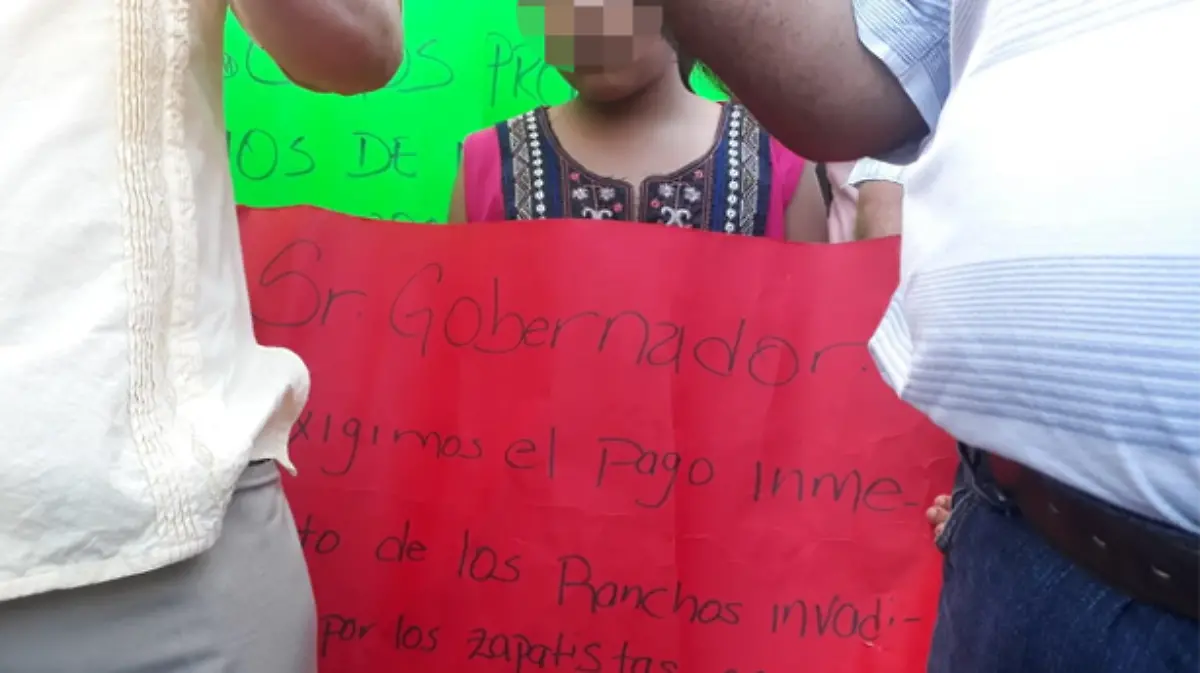 OS DE
Sr. Gobernador.
xigimos el pago inme-
to de los Ranchos invadi-
por los zapatistas